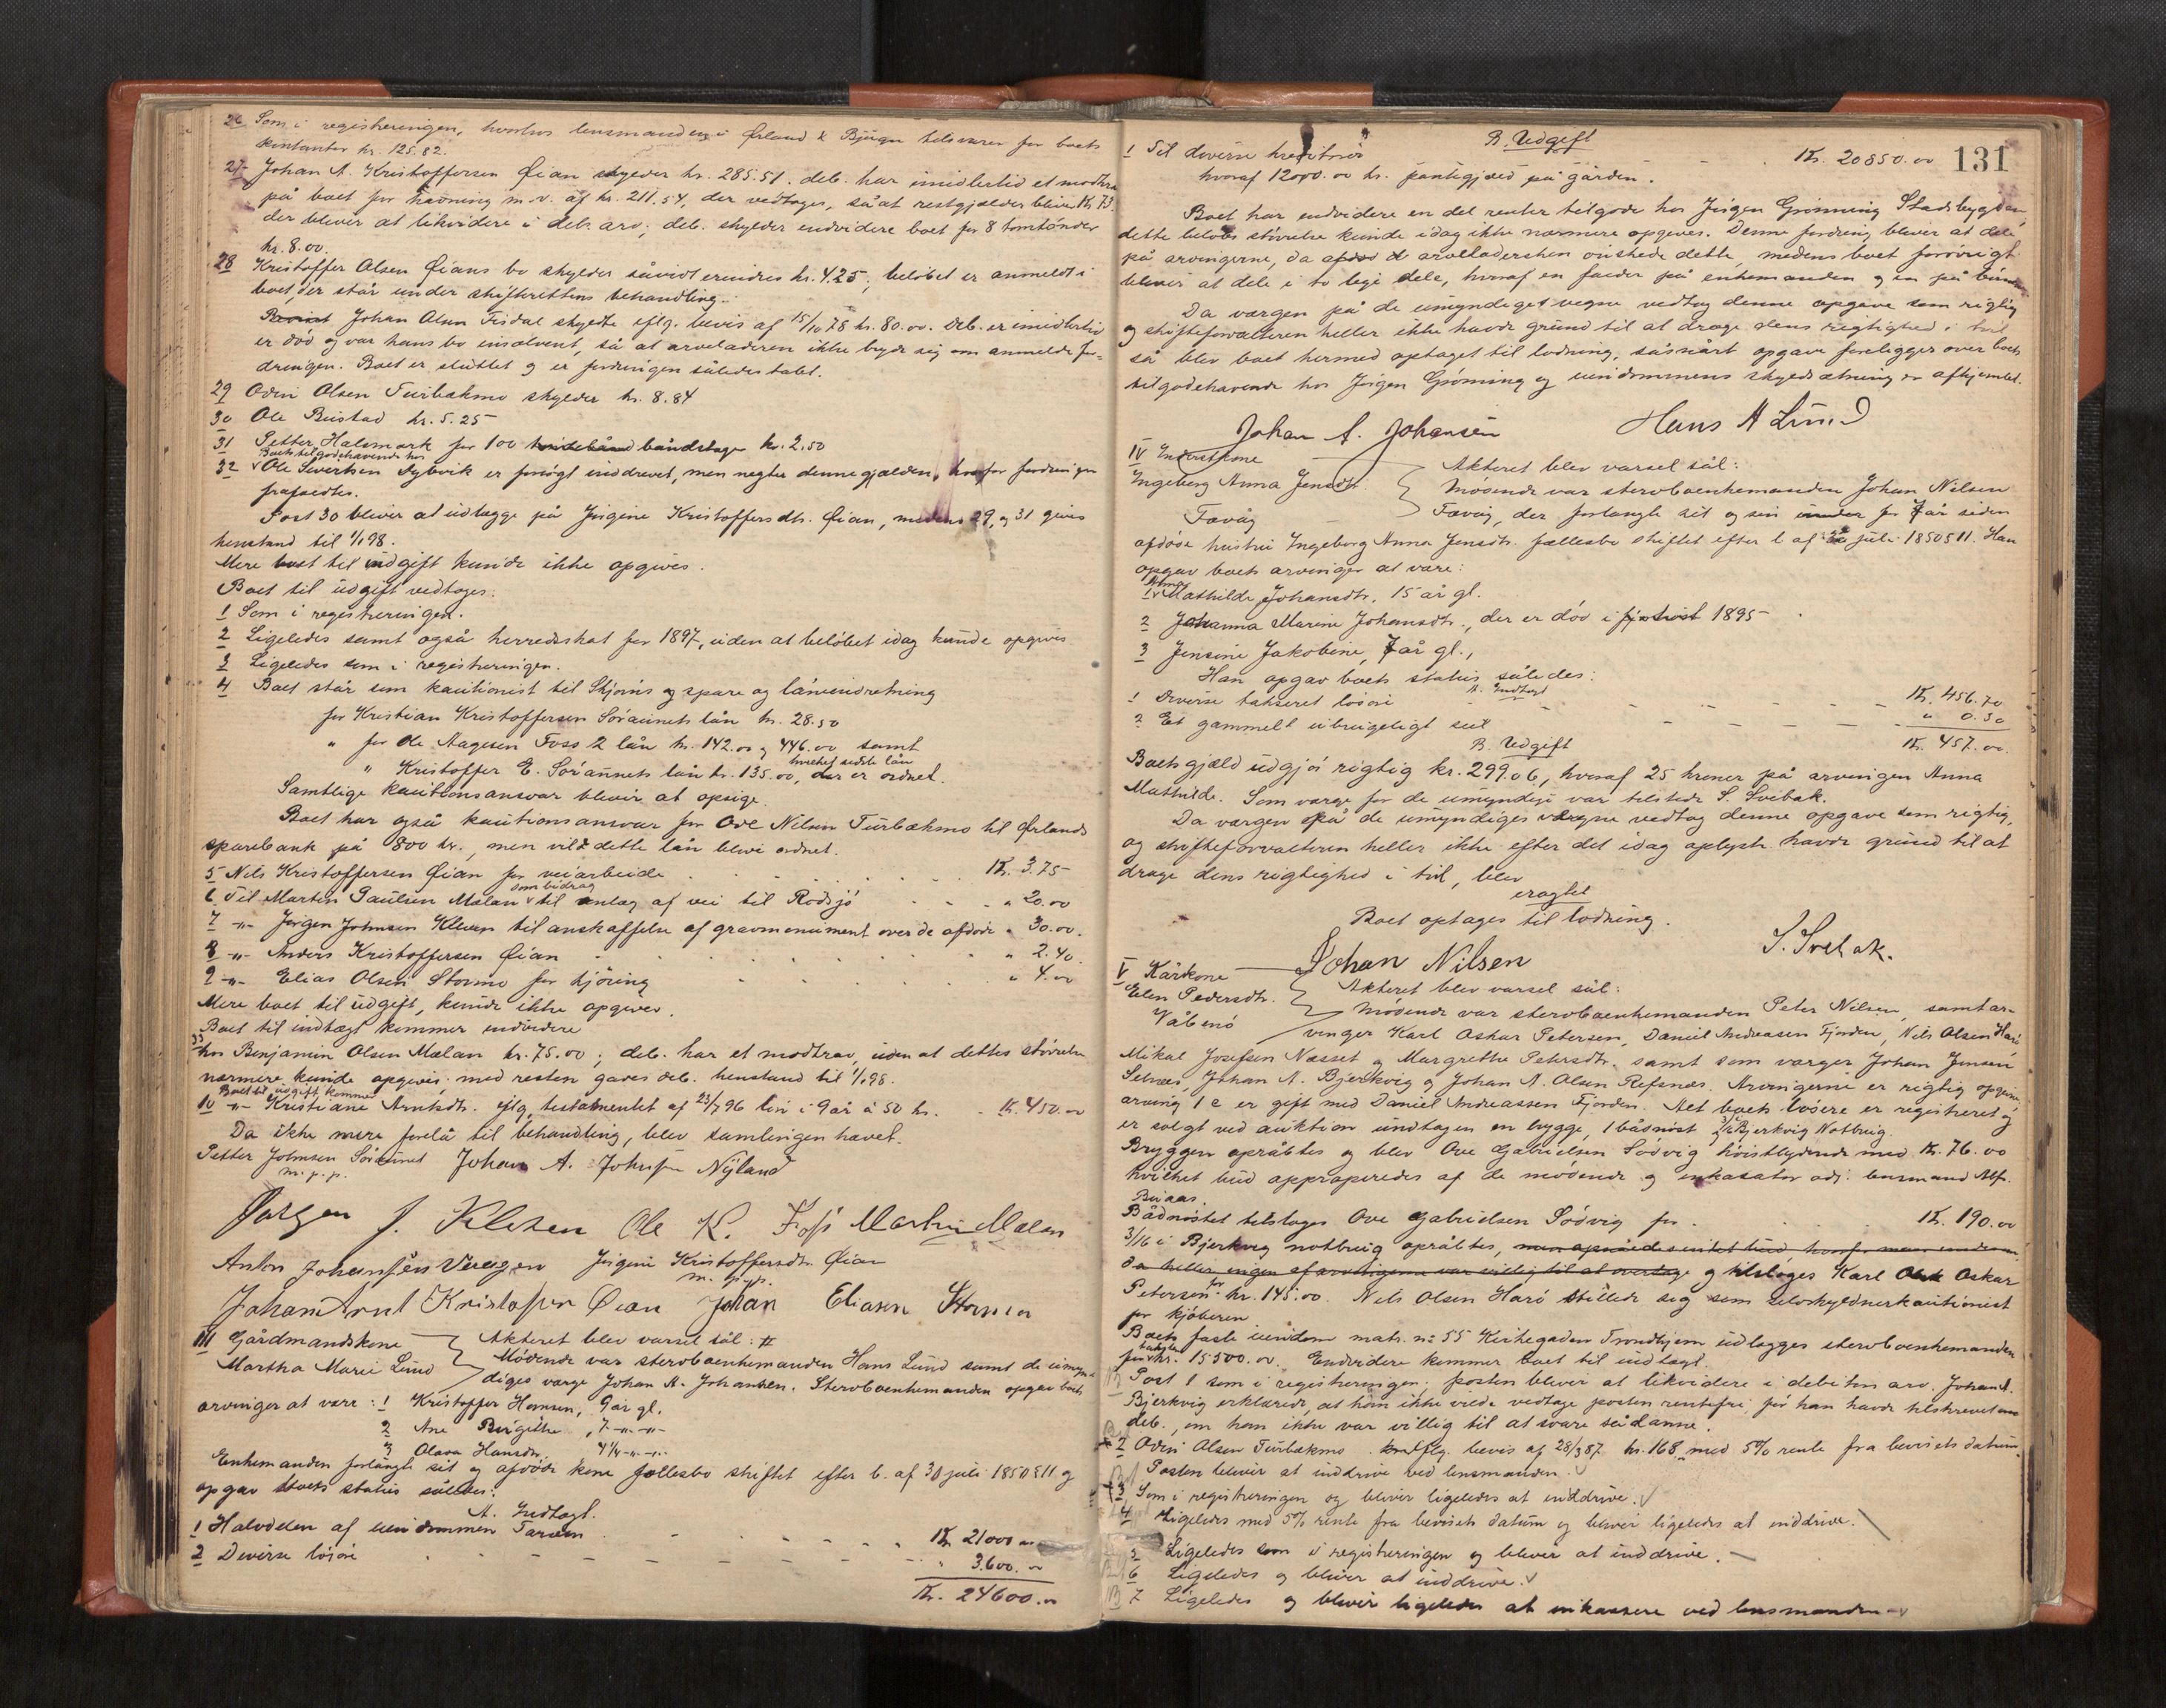 26 Som i registreringen, hvorhos lensmanden i Ørland & Bjugn tilsvarer for boets
kontanter kr. 125.82.
27 Johan A. Kristoffersen Øian skylder kr. 285.51. deb. har imidlertid et modkrav
på boet for havning m.v. af kr. 211.54, der vedtoges, så at restgjælden bliver kr. 73.
der bliver at likvidere i deb. arv; deb. skylder endvidere boet for 8 tomtønder
kr. 8.00
28 Kristoffer Olsen Øians bo skylder såvidt erindres kr. 425; beløbet er anmeldt i
boet, der står under skifterettens behandling.
Johan Olsen Fisdal skyldte iflg. bevis af 15/10 78 kr. 80.00. Deb. er imidlertid
er død og var hans bo insolvent, så at arveladeren ikke brydde sig om anmelde for-
dringen. Boet er sluttet og er fordringen således tabt.
29 Odin Olsen Turbækmo skylder kr. 8.84
30 Ole Bustad kr. 5.25
31 Petter Halsmark for 100 båndstager kr. 2.50
Boets tilgodehavende hos
32 Ole Sivertsen Dybvik er forsøgt inddrevet, men negter denne gjælden, hvorfor fordringen
frafaldtes.
Post 30 bliver at udlægge på Jørgine Kristoffersdtr. Øian, medens 29, og 31 gives
henstand til 1/1 98.
Mere boet til indgift kunde ikke opgives.
Boet til udgift vedtoges:
1 Som i registreringen.
2 Ligeledes samt også herredsskat for 1897, uden at beløbet idag kunde opgives
3 Ligeledes som i registreringen.
4 Boet står som kautionist til Skjørns spare og låneindretning
for Kristian Kristoffersen Søraunets lån kr. 28.50
" for Ole Aagesen Foss 2 lån kr. 142.00 og 446.00 samt
hvilket sidste lån
" Kristoffer E. Søraunets lån kr. 135.00, der er ordnet.
Samtlige kautionsansvar blever at opsige.
Boet har også kautionsansvar for Ove Nilsen Turbækmo til Ørlands
sparebank på 800 kr., men vild dette lån blive ordnet.
5 Nils Kristoffersen Øian for veiarbeide . . . Kr. 3.75
som bidrag
6 Til Martin Paulsen Mælan til anlæg af vei til Rødsjø . . . " 20.00
7 -"- Jørgen Johnsen Kleven til anskaffelse af gravmonument over de afdøde " 30.00.
8 -"- Anders Kristoffersen Øian . . . " 2.40.
9 -"- Elias Olsen Stormo for kjøring . . . " 4.00
Mere boet til udgift, kunde ikke opgives.
Boet til indtægt kommer endvidere
33 hos Benjamin Olsen Mælan kr. 75.00; deb. har et modkrav, uden at dettes størrelse
nærmere kunde opgives; med resten gaves deb. henstand til 1/1 98.
Boet til udgift kommer
10 -"- Kristiane Arntsdtr. iflg. testamentet af 23/7 96 løn i 9 år à 50 kr. . . Kr. 450.00
Da ikke mere forelå til behandling, blev samlingen hævet.
Petter Johnsen Søraunet Johan A. Johnsen Nyland
m. p. p.
Jørgen J. Kleven Ole K. Foss Martin Mælan
Anton Johansen Jørgine Kristoffersdtr. Øian
m. p. p.
Johan Arnt Kristofersen Øian Johan Eliasen Stormo
III Gårdmandskone } Akteret blev varsel sål: #
Martha Marie Lund } Mødende var sterboenkemanden Hans Lund samt de umyn-
diges værge Johan A. Johansen. Sterboenkemanden opgav boets
arvinger at være: 1 Kristoffer Hansen, 9 år gl.
2 Ane Birgithe, 7 -"- -"-
3 Olava Hansdtr, 4 1/4 -"- -"-
Enkemanden forlangte sit og afdøde kone fællesbo skiftet efter l. af 30 juli 1850 § 11 og
opgav boets status således:
A. Indtægt.
1 Halvdelen af eiendommen Tarven . . . Kr. 21000.00
2 Diverse løsøre . . . " 3.600.00
Kr. 24600.00
131
B. Udgift
1 Til diverse kreditorer . . . Kr. 20850.00
hvoraf 12000.00 kr. pantegjæld på gården.
Boet har endvidere en del renter tilgode hos Jørgen Grønning Stadsbygden
dette beløbs størrelse kunde idag ikke nærmere opgives. Denne fordring bliver at dele
på arvingerne, da arveladersken ønskede dette, medens boet forøvrigt
bliver at dele i to lige dele, hvoraf en falder på enkemanden og en på børnene.
Da værgen på de umyndiges vegne vedtog denne opgave som rigtig
og skifteforvalteren heller ikke havde grund til at drage dens rigtighed i tvil
så blev boet hermed optaget til lodning, såsnart opgave foreligger over boets
tilgodehavende hos Jørgen Grønning og eiendommens skyldsætning er afhjemlet.
Johan A. Johansen Hans A Lund
IV Inderstkone } Akteret blev varsel sål:
Ingeborg Anna Jensdtr. } Mødende var sterboenkemanden Johan Nilsen
Fævåg Fævåg, der forlangte sit og sin for 7 år siden
afdøde hustru Ingeborg Anna Jensdtr. fællesbo skiftet efter l. af 30 juli 1850 § 11. Han
opgav boets arvinger at være:
Anna
1 Mathilde Johansdtr, 15 år gl.
2 Johanna Marine Johansdtr., der er død i 1895
3 Jensine Jakobine, 7 år gl.,
Han opgav boets status således:
A. Indtægt
1 Diverse takseret løsøre . . . Kr. 456.70
2 Et gammelt ubrugeligt seil . . . " 0.30
Kr. 457.00.
B. Udgift
Boets gjæld udgjør rigtig kr. 299.06, hvoraf 25 kroner på arvingen Anna
Mathilde. Som værge for de umyndige var tilstede S. Svebak.
Da værgen på de umyndiges vegne vedtog denne opgave som rigtig,
og skifteforvalteren heller ikke efter det idag oplyste havde grund til at
drage dens rigtighed i tvil, blev
eragtet
Boet optages til lodning.
Johan Nilsen S. Svebak.
V Kårkone } Akteret blev varsel sål:
Elen Pedersdtr. } Mødende var sterboenkemanden Peter Nilsen, samt ar-
Våbenø vinger Karl Oskar Petersen, Daniel Andreasen Fjorden, Nils Olsen Harø
Mikal Josefsen Næsset og Margrethe Petersdtr. samt som værger Johan Jensen
Selnæs, Johan A. Bjerkvig og Johan A. Olsen Refsnæs. Arvingerne er rigtig opgivne,
arving 1 c er gift med Daniel Andreassen Fjorden. Alt boets løsøre er registreret og
er solgt ved auktion undtagen en brygge, 1 bådnøst og 3/16 i Bjerkvig Notbrug.
Bryggen opråbtes og blev Ove Gabrielsen Sødvig høistbydende med Kr. 76.00
hvilket bud approberedes af de mødende og inkasator adj: lensmand Alf.
Buaas.
Bådnøstet tilsloges Ove Gabrielsen Sødvig for . . . Kr. 190.00
3/16 i Bjerkvig notbrug opråbtes,
da heller ingen af arvingerne var villig til at overtage og tilsloges Karl Oskar
Petersen for kr. 145.00. Nils Olsen Harø stillede sig som selvskyldnerkautionist
for kjøberen
Boets faste eiendom matr. nr 55 Kirkegaden Trondhjem udlægges sterboenkemanden
for taksten kr. 15500.00. Endvidere kommer boet til indtægt.
Post 1 som i registreringen; posten bliver at likvidere i debitors arv. Johan A.
Bjerkvig erklærede, at han ikke vilde vedtage posten rentefri, før han havde tilskrevet
deb., om han ikke var villig til at svare sådanne.
2 Odin Olsen Turbækmo iflg. bevis af 28/3 87 kr. 168 med 5% rente fra bevisets datum
Posten bliver at inddrive ved lensmanden.
3 Som i registreringen og bliver ligeledes at inddrive.
4 Ligeledes med 5% rente fra bevisets datum og bliver ligeledes at inddrive.
5 Ligeledes som i registreringen og blever at inddrive.
6 Ligeledes og bliver at inddrive.
7 Ligeledes og blever ligeledes at inkassere ved lensmanden